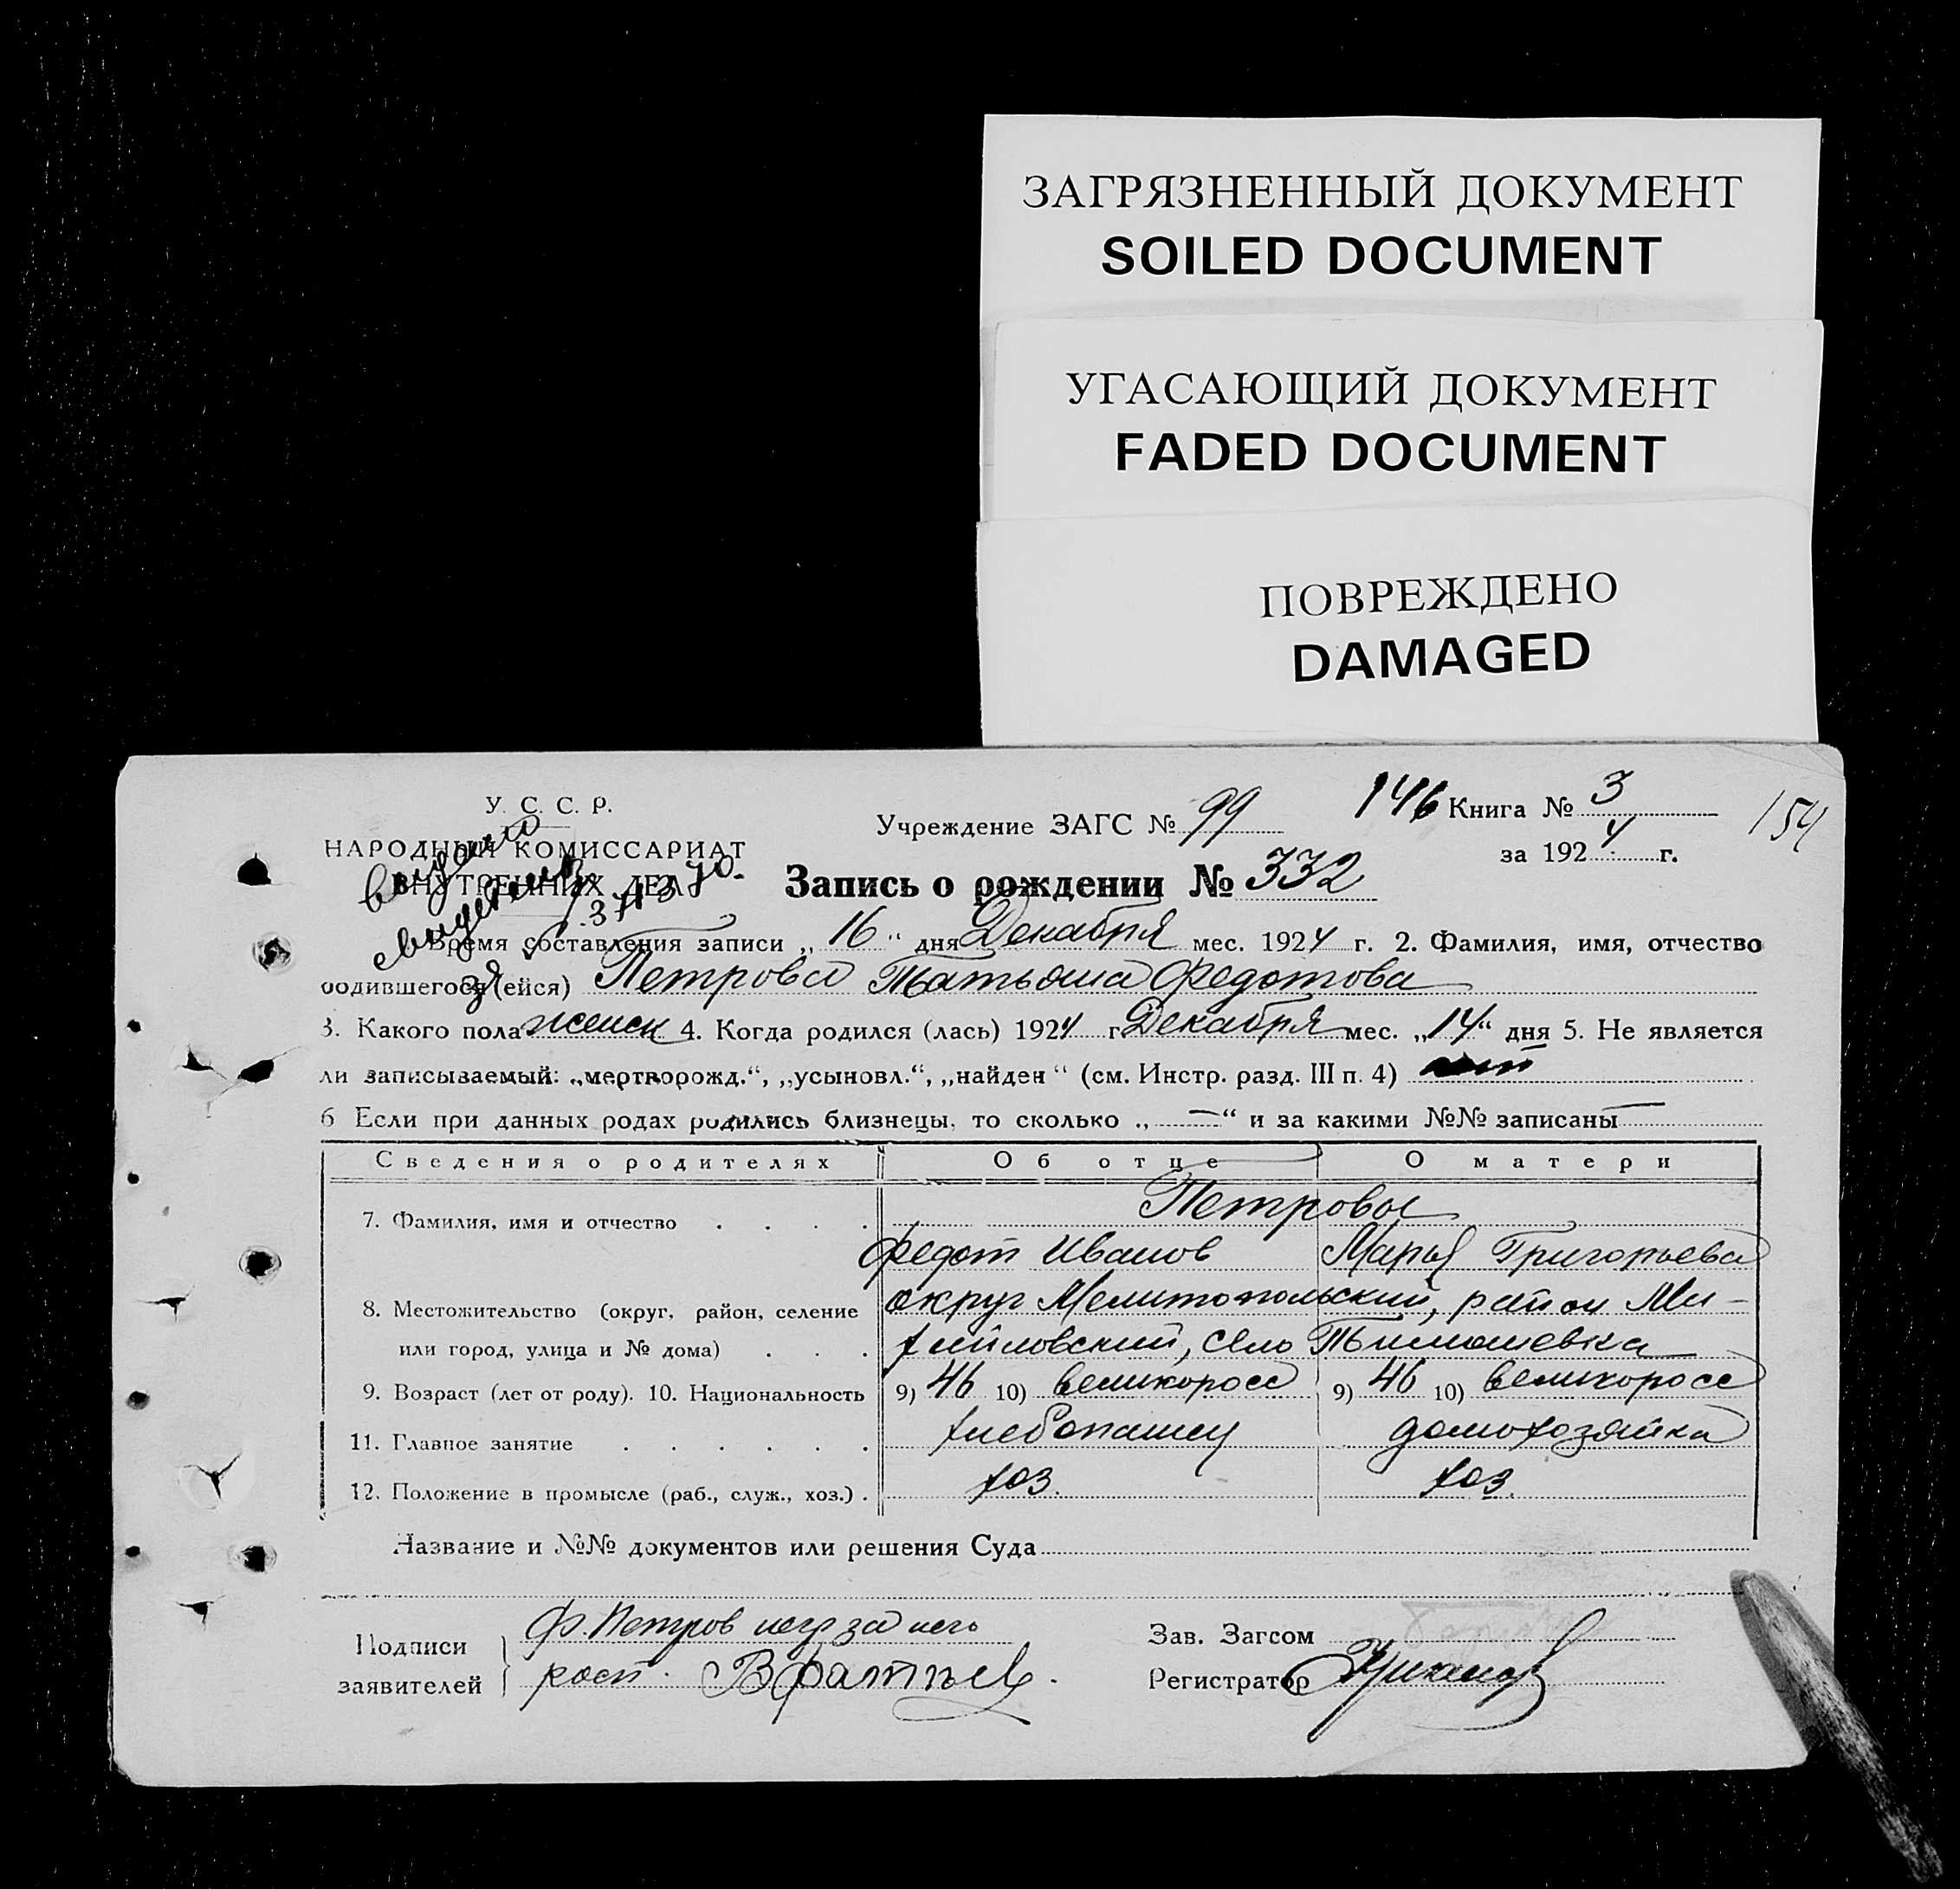 ЗАГРЯЗНЕННЫЙ ДОКУМЕНТ
SOILED DOCUMENT
УГАСАЮЩИЙ ДОКУМЕНТ
FADED DOCUMENT
ПОВРЕЖДЕНО
DAMAGED
У. С. С. Р.
НАРОДНЫЙ КОМИССАРИАТ
ВНУТРЕННИХ ДЕЛ
выдано
Учреждение ЗАГС № 99
146 Книга № 3
154
за 1924 г.
Запись о рождении № 332
Время составления записи „16“ дня Декабря мес. 1924 г. 2. Фамилия, имя, отчество
родившегося (ейся) Петрова Татьяна Федотова
3. Какого пола женск 4. Когда родился (лась) 1924 г. Декабря мес. „14“ дня 5. Не является
ли записываемый: „мертворожд.“, „усыновл.“, „найден“ (см. Инстр. разд. III п. 4) нет
6 Если при данных родах родились близнецы, то сколько „—“ и за какими №№ записаны —
Сведения о родителях Об отце О матери
7. Фамилия, имя и отчество Петровы
Федот Иванов Марья Григорьева
8. Местожительство (округ, район, селение округ Мелитопольский, район Ми-
или город, улица и № дома) хайловский, село Тимошевка
9. Возраст (лет от роду). 10. Национальность 9) 46 10) великоросс 9) 46 10) великоросс
11. Главное занятие хлебопашец домохозяйка
12. Положение в промысле (раб., служ., хоз.) хоз. хоз.
Название и №№ документов или решения Суда
Подписи заявителей
Ф. Петров негр за него
росп.
Зав. Загсом
Регистратор